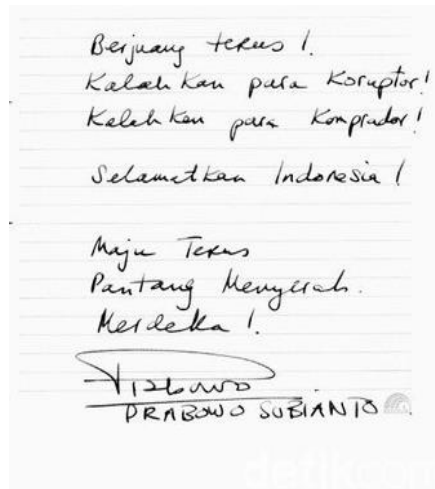 Berjuang terus!
Kalahkan para Koruptor!
Kalahkan para Komprador!
Selamatkan Indonesia!
Maju Terus
Pantang Menyerah.
Merdeka!
Prabowo
PRABOWO SUBIANTO
detikcom